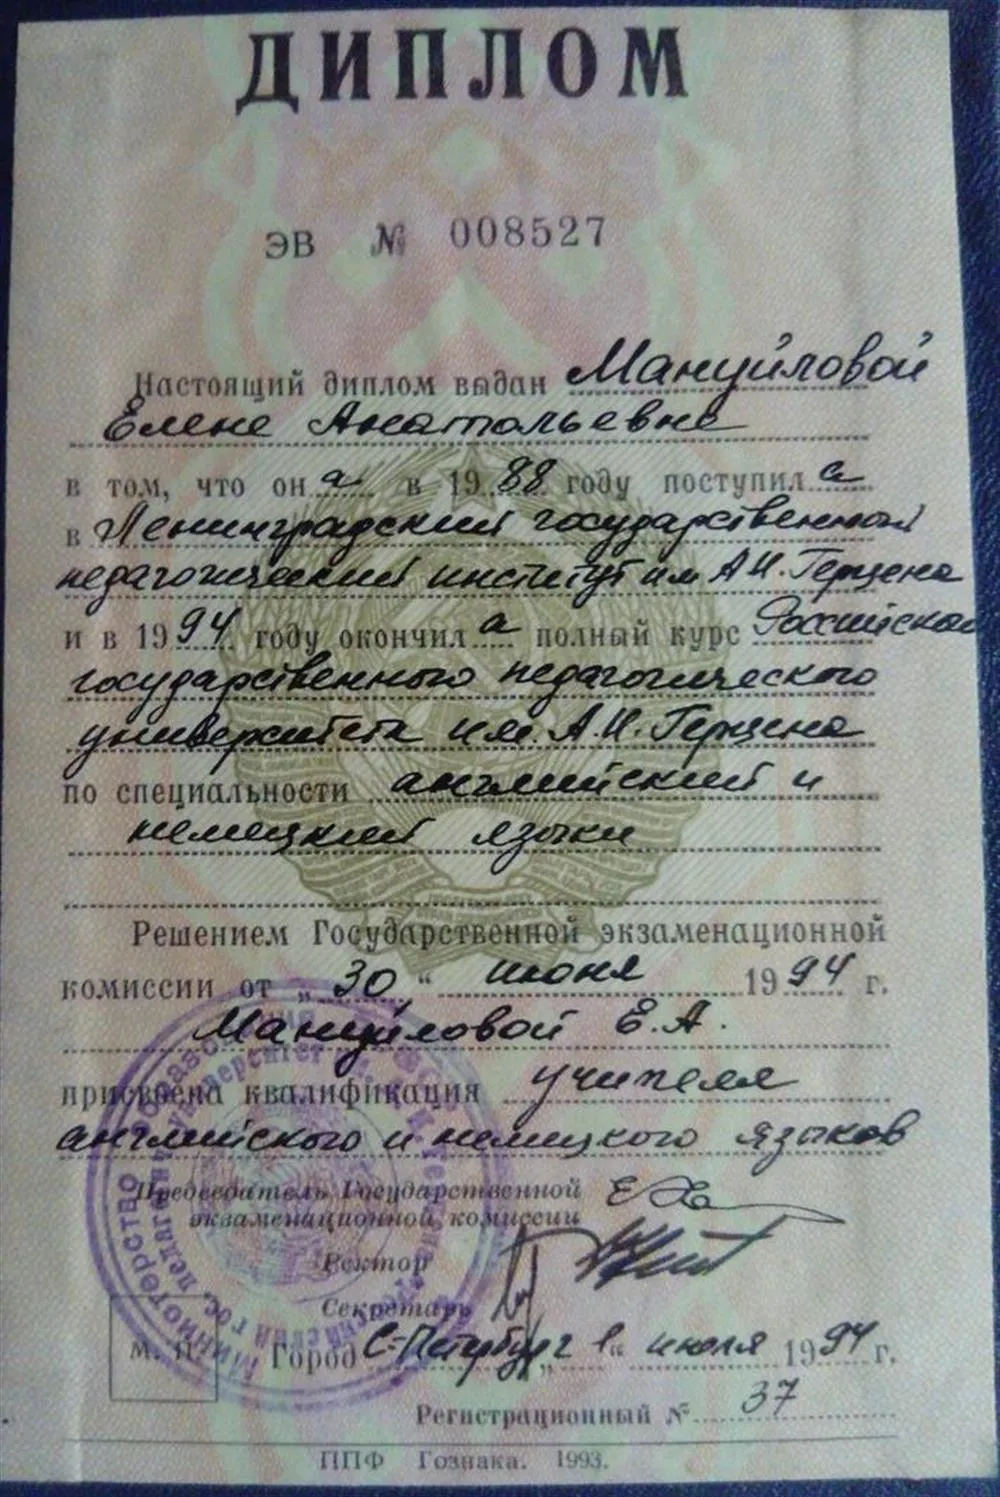 ДИПЛОМ
ЭВ № 008527
Настоящий диплом выдан Мануйловой
Елене Анатольевне
в том, что он а в 1988 году поступил а
в Ленинградский государственный
педагогический институт им. А.И. Герцена
и в 1994 году окончил а полный курс Российского
государственного педагогического
университета им. А.И. Герцена
по специальности английский и
немецкий языки
Решением Государственной экзаменационной
комиссии от „30“ июня 1994 г.
Мануйловой Е.А.
присвоена квалификация учителя
английского и немецкого языков
Председатель Государственной
экзаменационной комиссии
Ректор
Секретарь
М. П.
Город С-Петербург „1“ июля 1994 г.
Регистрационный № 37
ППФ Гознака. 1993.